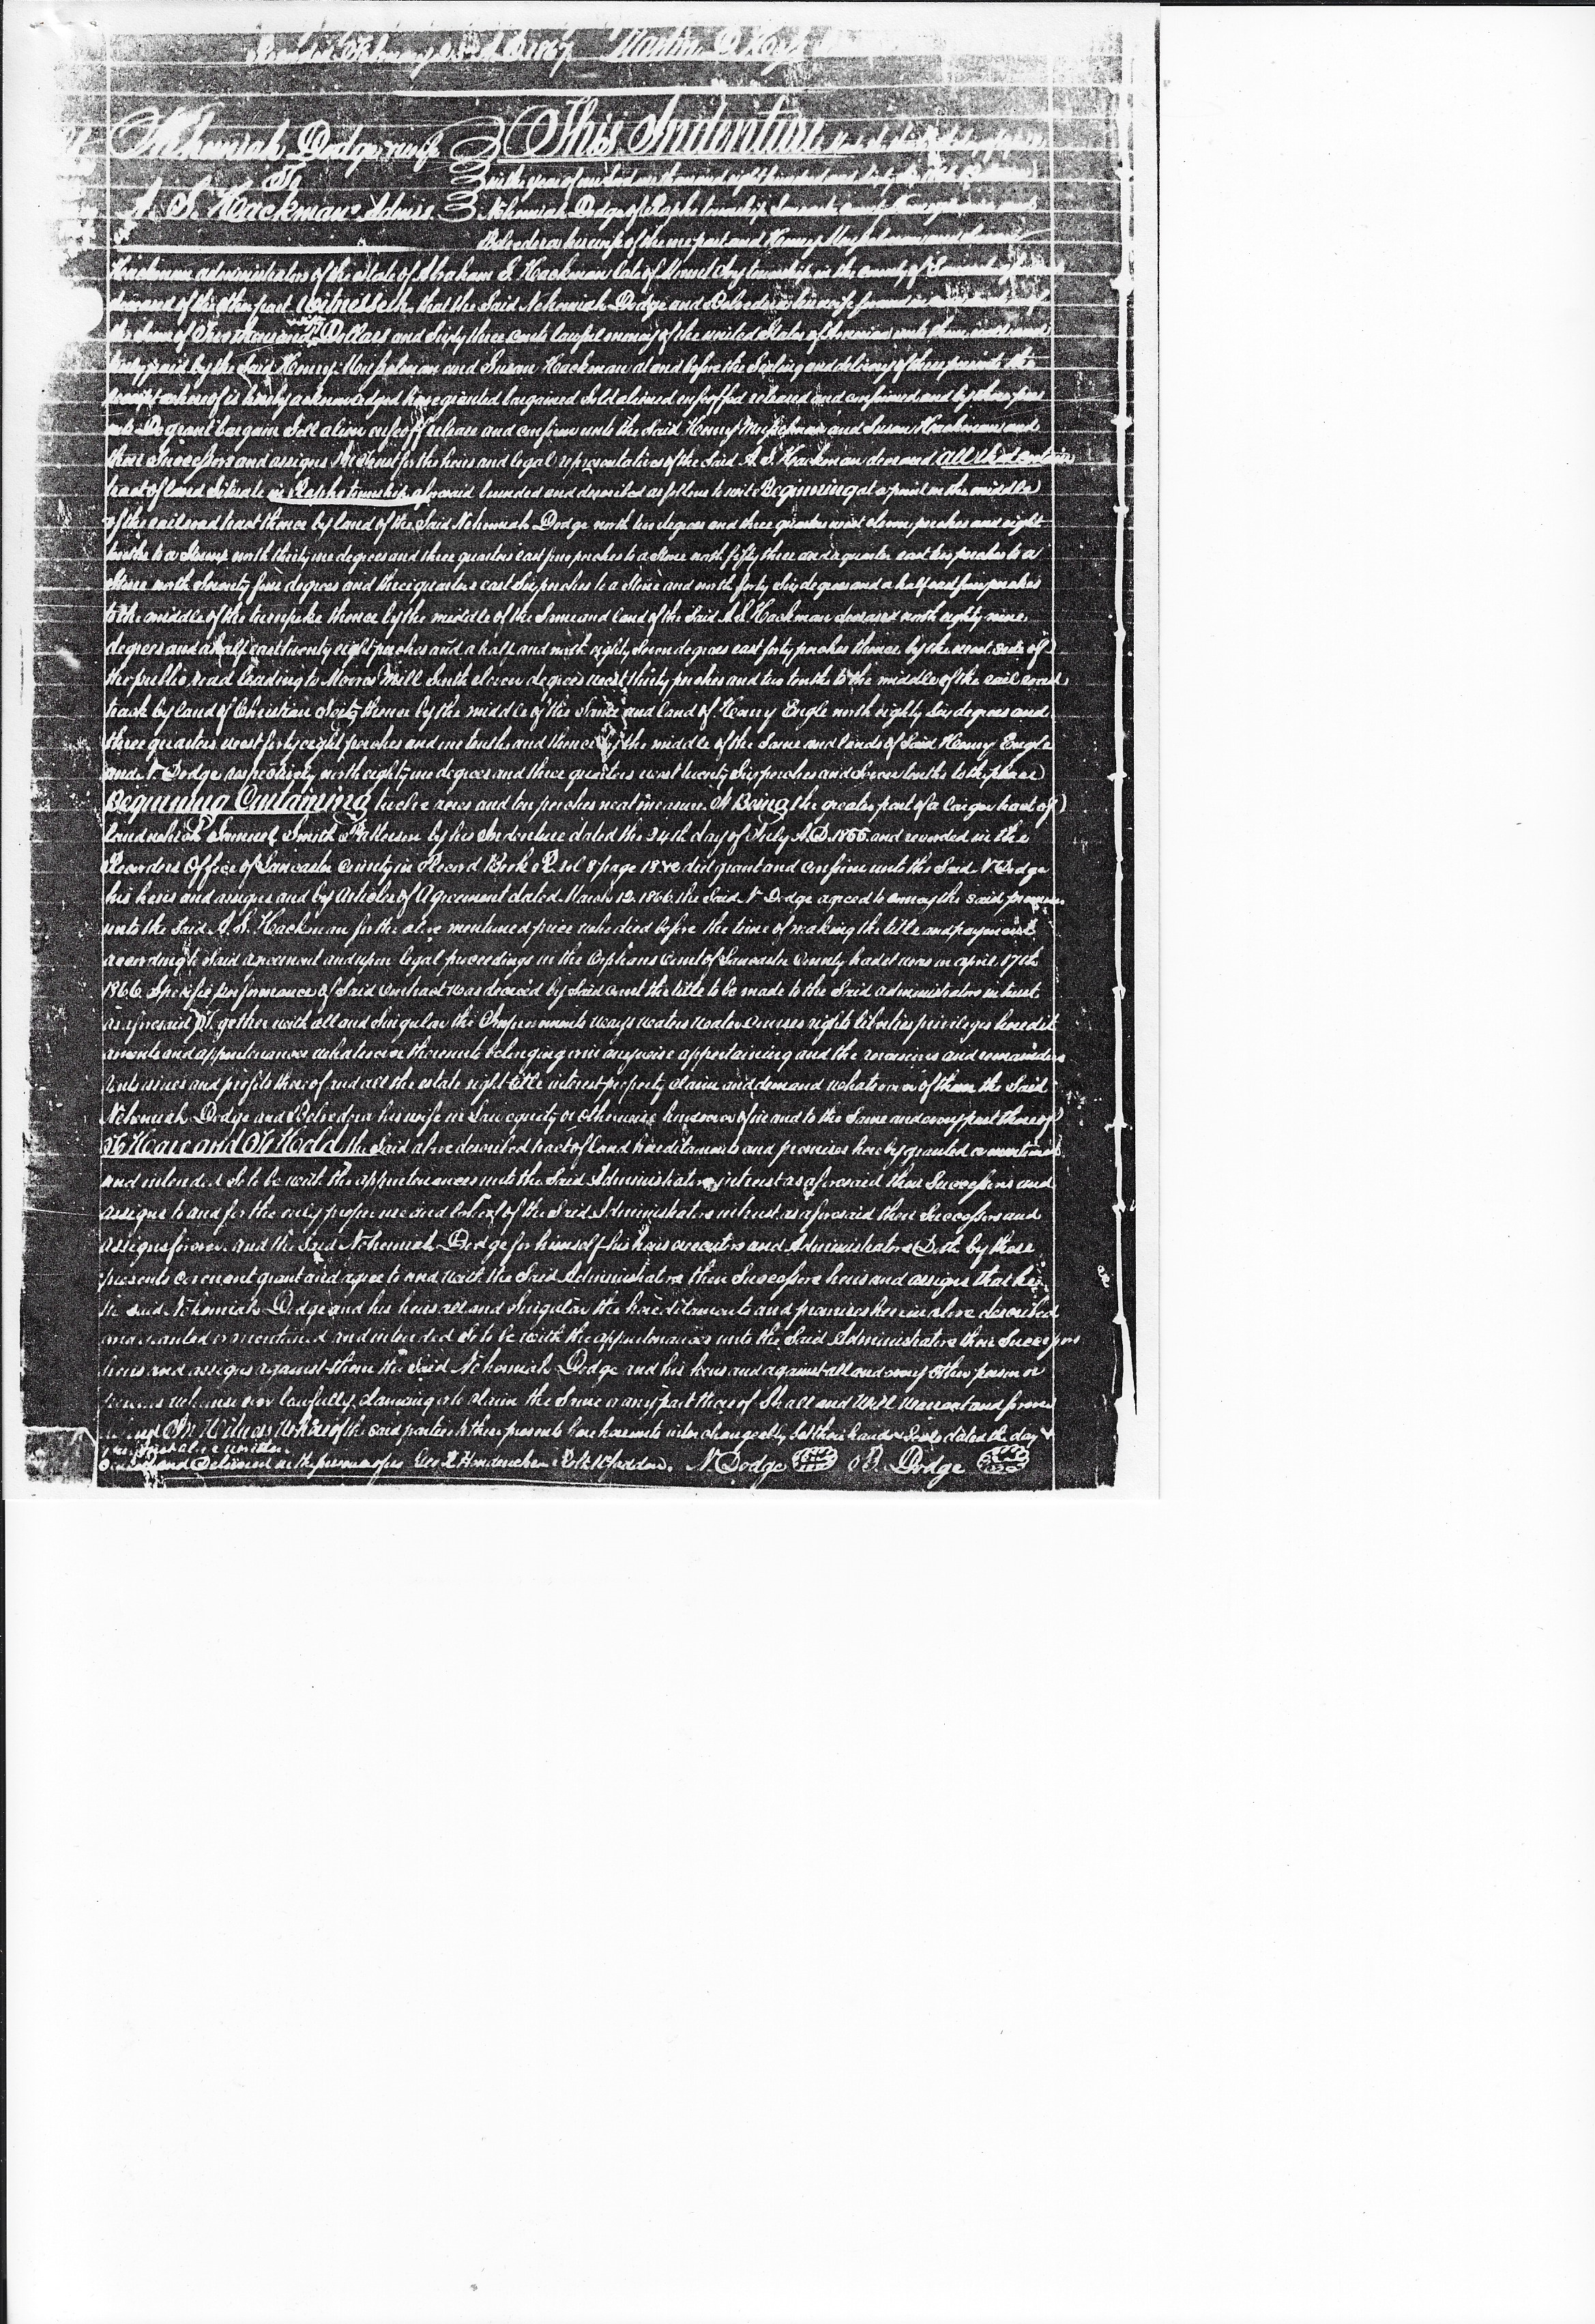 Recorded February 1867 Martin D.
Nehemiah Dodge & wife This Indenture
To in the year of our Lord one thousand eight hundred and sixty
A. S. Hackmans Admrs Nehemiah Dodge of Rapho township Lancaster county
Belvedora his wife of the one part and Henry Musselman and Susan
Hackman administrators of the estate of Abraham S. Hackman late of Mount Joy township in the county of Lancaster
deceased of the other part Witnesseth, that the Said Nehemiah Dodge and Belvedora his wife for and in
the Sum of thousand Dollars and Sixty three cents lawful money of the united States of America unto them well and
truly paid by the Said Henry Musselman and Susan Hackman at and before the Sealing and delivery of these presents the
receipt whereof is hereby acknowledged have granted bargained Sold aliened enfeoffed released and confirmed and by these pres
ents Do grant bargain Sell alien enfeoff release and confirm unto the Said Henry Musselman and Susan Hackman and
their Successors and assigns in trust for the heirs and legal representatives of the Said A. S. Hackman deceased all that certain
tract of land Situate in Rapho township aforesaid bounded and described as follows to wit Beginning at a point in the middle
of the railroad track thence by land of the Said Nehemiah Dodge north ten degrees and three quarters west eleven perches and eight
tenths to a Stump north thirty one degrees and three quarters east five perches to a Stone north fifty three and a quarter east ten perches to a
Stone north Seventy five degrees and three quarters east Six perches to a Stone and north forty Six degrees and a half east four perches
to the middle of the turnpike thence by the middle of the Same and land of the Said A. S. Hackman deceased north eighty nine
degrees and a half east twenty eight perches and a half and north eighty Seven degrees east forty perches thence by the west side of
the public road leading to Moores Mill South eleven degrees west thirty perches and two tenths to the middle of the rail road
track by land of Christian thence by the middle of the Same and land of Henry Engle north eighty Six degrees and
three quarters west forty eight perches and one tenth and thence by the middle of the Same and lands of Said Henry Engle
and N. Dodge respectively north eighty one degrees and three quarters west twenty Six perches and Seven tenths to the place of
Beginning Containing twelve acres and ten perches neat measure. It Being the greater part of a larger tract of
land which Samuel Smith Patterson by his Indenture dated the 24th day of July A.D. 1855 and recorded in the
Recorders Office of Lancaster County in Record Book R. vol 8 page 18 &c did grant and confirm unto the Said N. Dodge
his heirs and assigns and by Articles of Agreement dated March 12. 1866 the Said N Dodge agreed to convey the said premises
unto the Said A. S. Hackman for the above mentioned price who died before the time of making the title and payment
according to Said agreement and upon legal proceedings in the Orphans Court of Lancaster County had it was on april 17th
1866 Specific performance of Said Contract was decreed by Said court the title to be made to the Said administrators in trust
as aforesaid Together with all and Singular the Improvements ways waters water courses rights liberties privileges heredit
aments and appurtenances whatsoever thereunto belonging or in any wise appertaining and the reversions and remainders
rents issues and profits thereof and all the estate right title interest property claim and demand whatsoever of them the Said
Nehemiah Dodge and Belvedora his wife in Law equity or otherwise howsoever of in and to the Same and every part thereof
To Have and To Hold the Said above described tract of land hereditaments and premises hereby granted or mentioned
and intended So to be with the appurtenances unto the Said Administrators in trust as aforesaid their Successors and
assigns to and for the only proper use and behoof of the Said Administrators in trust as aforesaid their Successors and
assigns forever. and the Said Nehemiah Dodge for himself his heirs executors and Administrators Doth by these
presents covenant grant and agree to and with the Said Administrators their Successors heirs and assigns that he
the said Nehemiah Dodge and his heirs all and Singular the hereditaments and premises herein above described
and granted or mentioned and intended So to be with the appurtenances unto the Said Administrators their Successors
heirs and assigns against them the Said Nehemiah Dodge and his heirs and against all and every other person or
persons whomsoever lawfully claiming or to claim the Same or any part thereof Shall and Will Warrant and forever
defend In Witness Whereof the said parties to these presents have hereunto interchangeably Set their hands & Seals dated the day &
year first above written
Sealed and Delivered in the presence of us N. Dodge B. Dodge